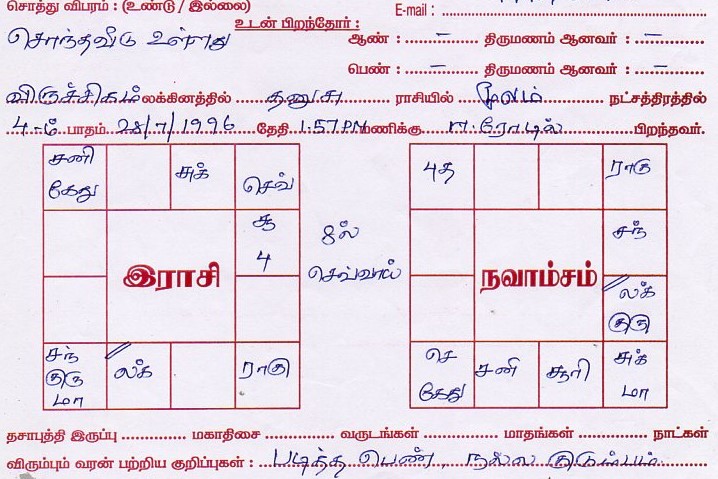 சொத்து விபரம் : (உண்டு / இல்லை)
E-mail :
உடன் பிறந்தோர் :
சொந்தவீடு உள்ளது
ஆண் : – திருமணம் ஆனவர் : –
பெண் : – திருமணம் ஆனவர் : –
விருச்சிகம் லக்கினத்தில் தனுசு ராசியில் மூலம் நட்சத்திரத்தில்
4-ம் பாதம் 28/7/1996 தேதி 1.57 PM மணிக்கு ஈ.ரோடில் பிறந்தவர்.
சனி சுக் செவ்
கேது
சூ
4
இராசி
சந் லக் ராகு
குரு
மா
8ல்
செவ்வாய்
4த ராகு
சந்
நவாம்சம்
லக்
குரு
செ சனி சூரி சுக்
கேது மா
தசாபுத்தி இருப்பு மகாதிசை வருடங்கள் மாதங்கள் நாட்கள்
விரும்பும் வரன் பற்றிய குறிப்புகள் : படித்த பெண், நல்ல குடும்பம்.